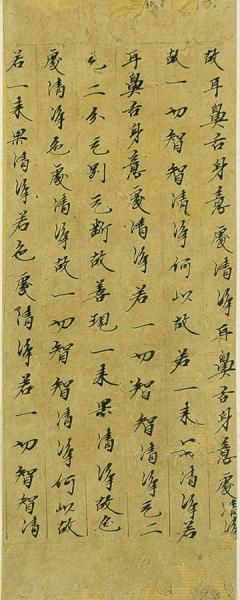 故耳鼻舌身意處清淨耳鼻舌身意處清淨
故一切智智清淨何以故若一来果清淨若
耳鼻舌身意處清淨若一切智智清淨无二
无二分无別无断故善現一来果清淨故色
處清淨色處清淨故一切智智清淨何以故
若一来果清淨若色處清淨若一切智智清